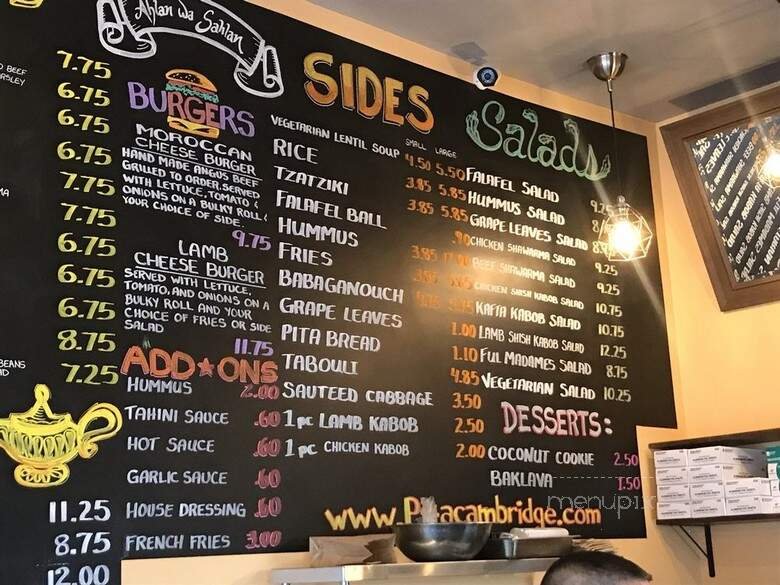 Ahlan wa Sahlan
D BEEF
7.75
6.75
6.75
6.75
6.75
7.75
7.75
6.75
6.75
6.75
8.75
7.25
BEANS
11.25
8.75
12.00
BURGERS
MOROCCAN
CHEESE BURGER
HAND MADE ANGUS BEEF
GRILLED TO ORDER. SERVED
WITH LETTUCE, TOMATO &
ONIONS ON A BULKY ROLL &
YOUR CHOICE OF SIDE.
9.75
LAMB
CHEESE BURGER
SERVED WITH LETTUCE,
TOMATO, AND ONIONS ON A
BULKY ROLL AND YOUR
CHOICE OF FRIES OR SIDE
SALAD
11.75
ADD ONS
HUMMUS 2.00
TAHINI SAUCE .60
HOT SAUCE .60
GARLIC SAUCE .60
HOUSE DRESSING .60
FRENCH FRIES 3.00
SIDES
SMALL LARGE
VEGETARIAN LENTIL SOUP 4.50 5.50
RICE 3.85 5.85
TZATZIKI 3.85 5.85
FALAFEL BALL .90
HUMMUS 3.85
FRIES
BABAGANOUCH
GRAPE LEAVES 1.00
PITA BREAD 1.10
TABOULI 4.85
SAUTEED CABBAGE 3.50
1pc LAMB KABOB 2.50
1pc CHICKEN KABOB 2.00
Salads
FALAFEL SALAD 9.25
HUMMUS SALAD
GRAPE LEAVES SALAD
CHICKEN SHAWARMA SALAD 9.25
BEEF SHAWARMA SALAD 9.25
CHICKEN SHISH KABOB SALAD 9.25
KAFTA KABOB SALAD 10.75
LAMB SHISH KABOB SALAD 12.25
FUL MADAMES SALAD 8.75
VEGETARIAN SALAD 10.25
DESSERTS:
COCONUT COOKIE 2.50
BAKLAVA 1.50
menupix